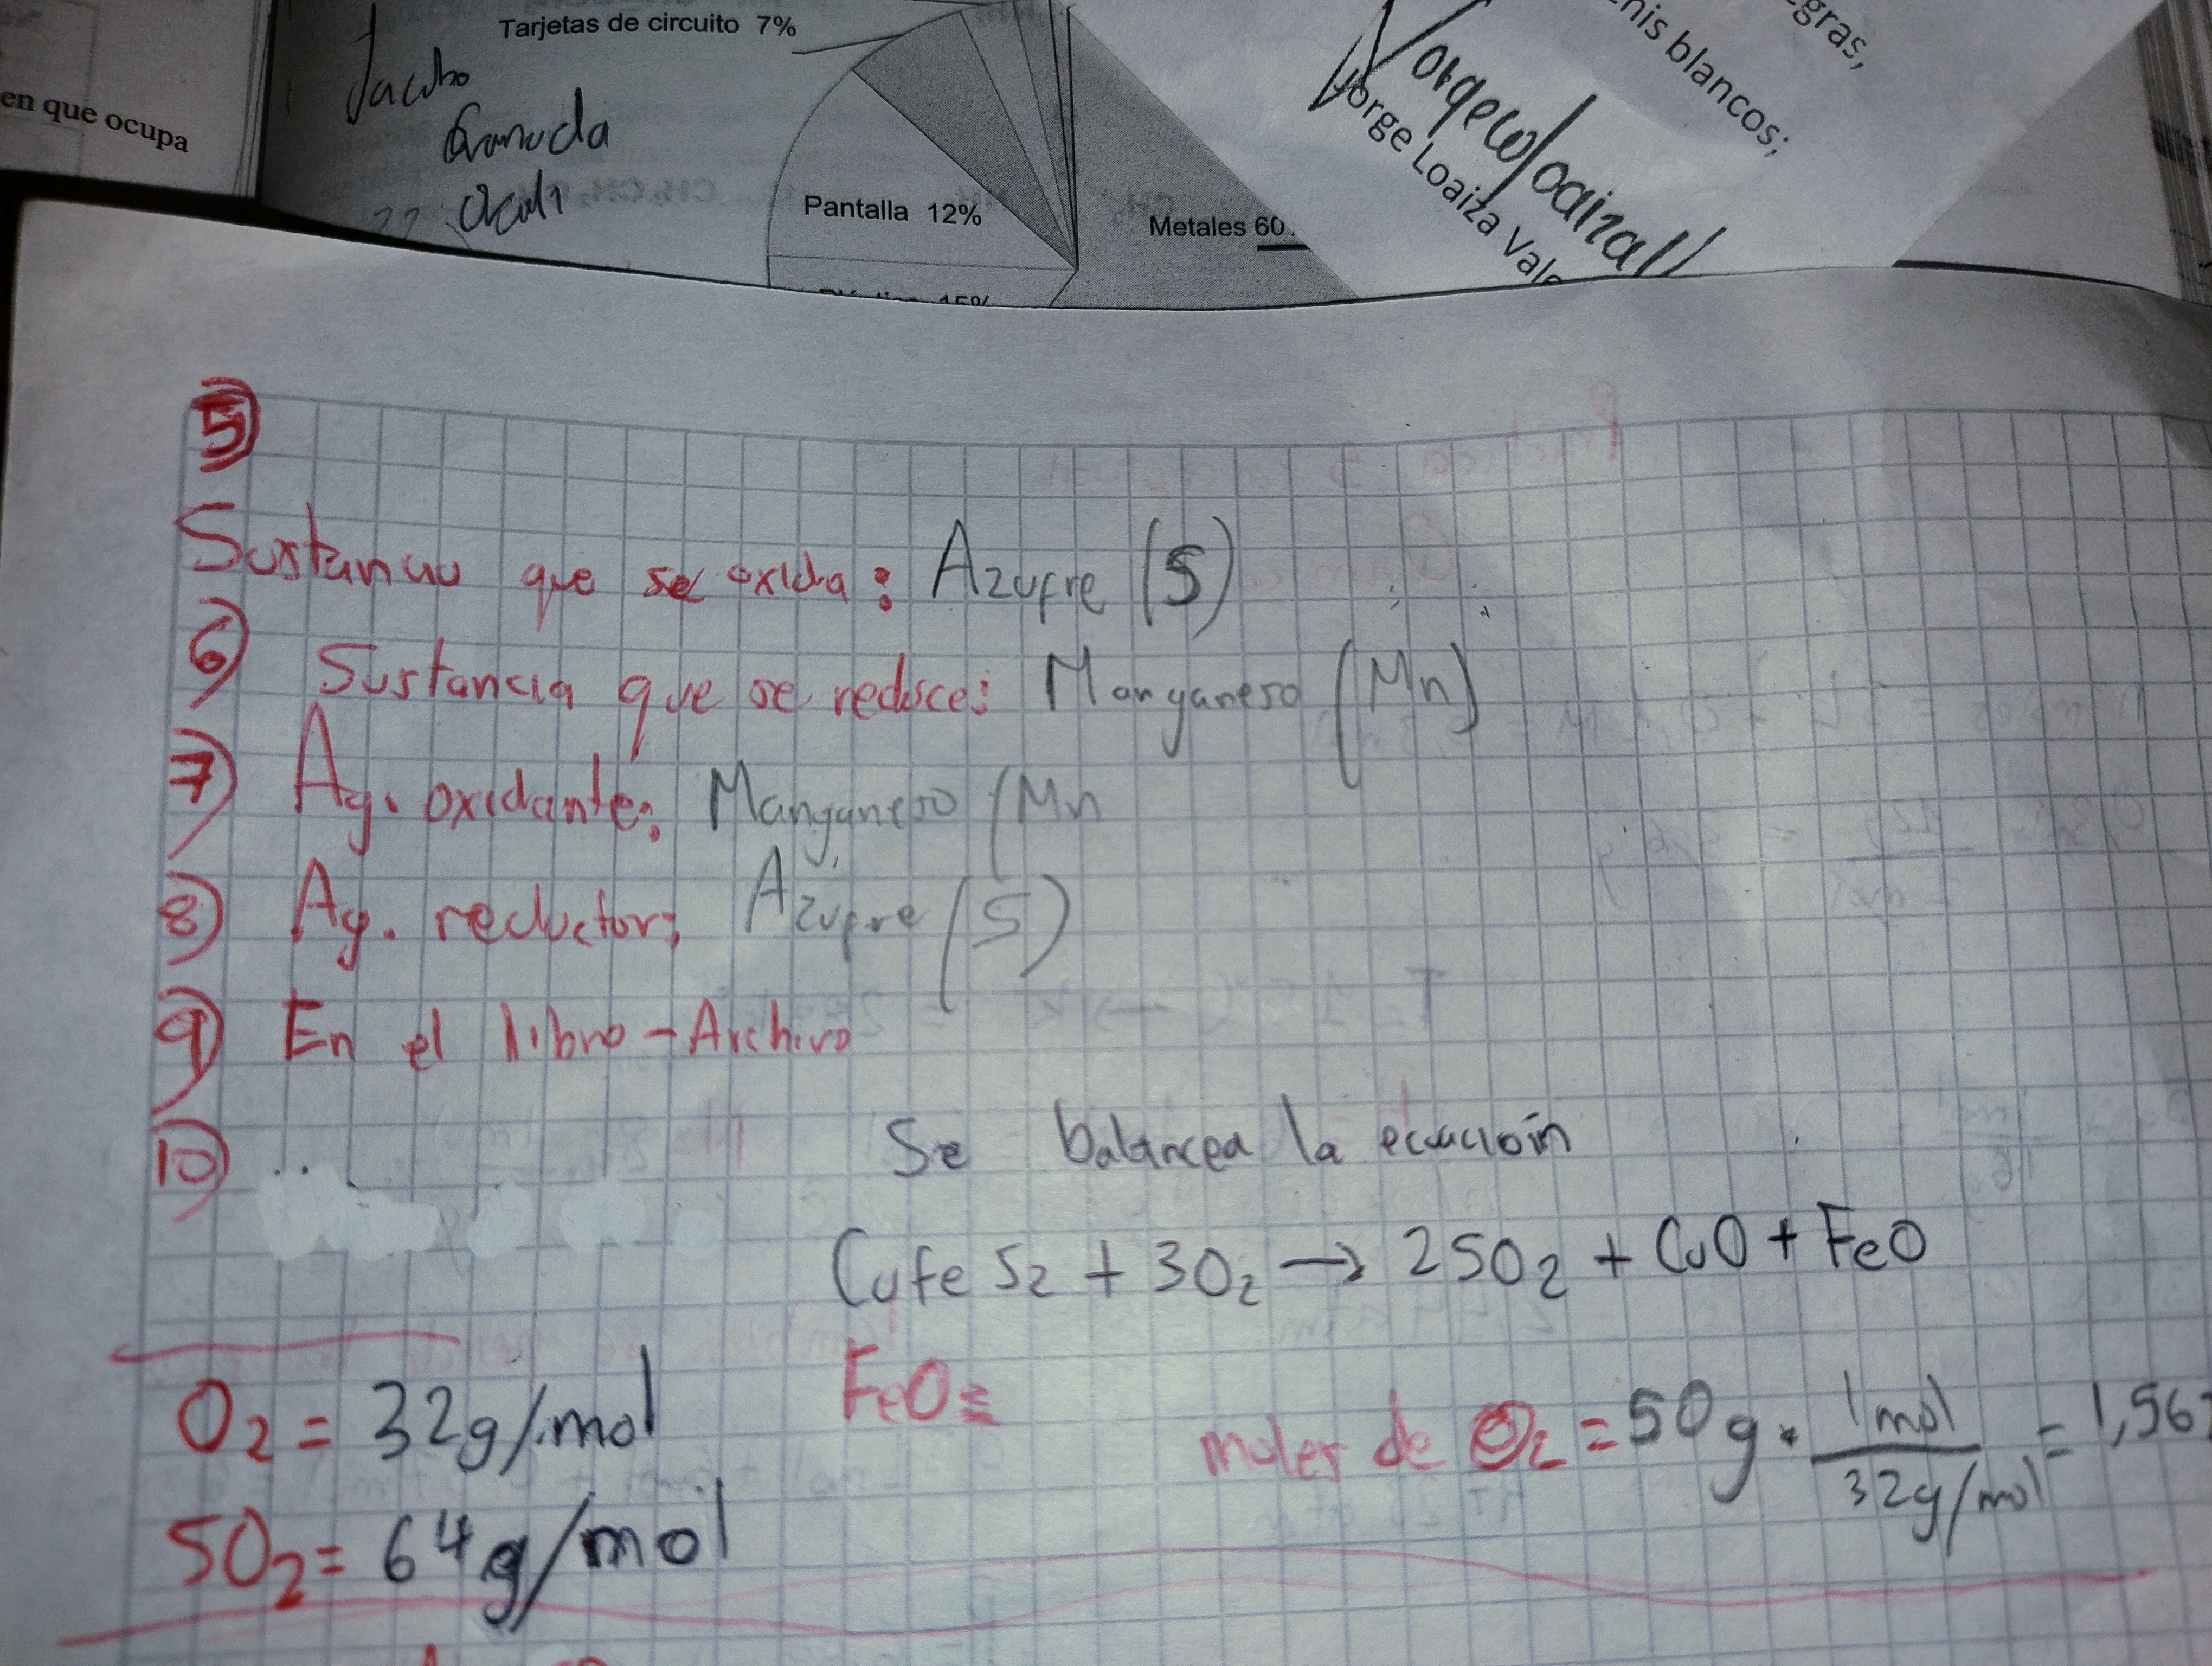 en que ocupa
Tarjetas de circuito 7%
Pantalla 12%
Metales 60
15%
egras,
nis blancos;
Jorge Loaiza Vale
5)
Sustancia que se oxida: Azufre (S)
6) Sustancia que se reduce: Manganeso (Mn)
7) Ag. oxidante: Manganeso (Mn
8) Ag. reductor: Azufre (S)
9) En el libro - Archivo
10) ..
Se balancea la ecuación
CuFeS2 + 3O2 → 2SO2 + CuO + FeO
O2 = 32g/mol
FeO=
moles de O2 = 50g · 1mol / 32g/mol = 1,56
SO2 = 64g/mol